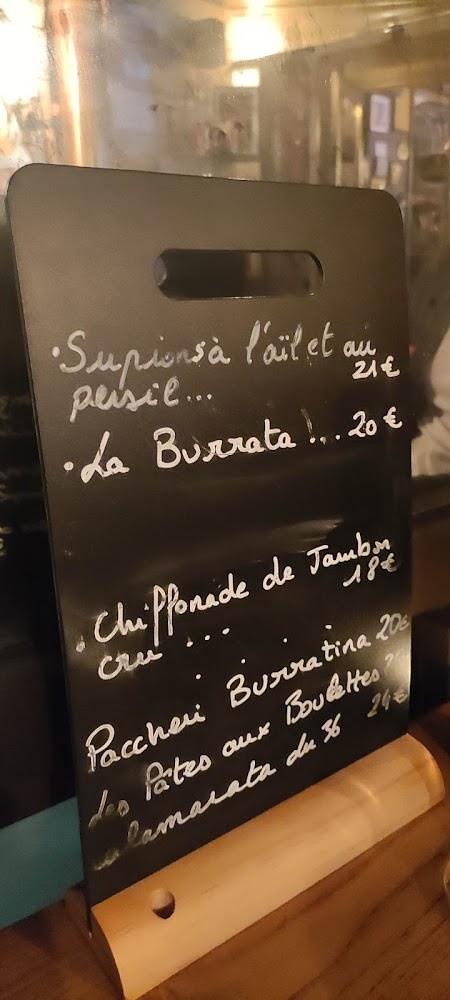 · Supions à l'aïl et au
persil... 21€
· La Burrata !... 20 €
· Chiffonade de Jambon
cru ... 18€
. . . .
Paccheri Burratina 20€
des Pâtes aux Boulettes
calamarata du 36 24€